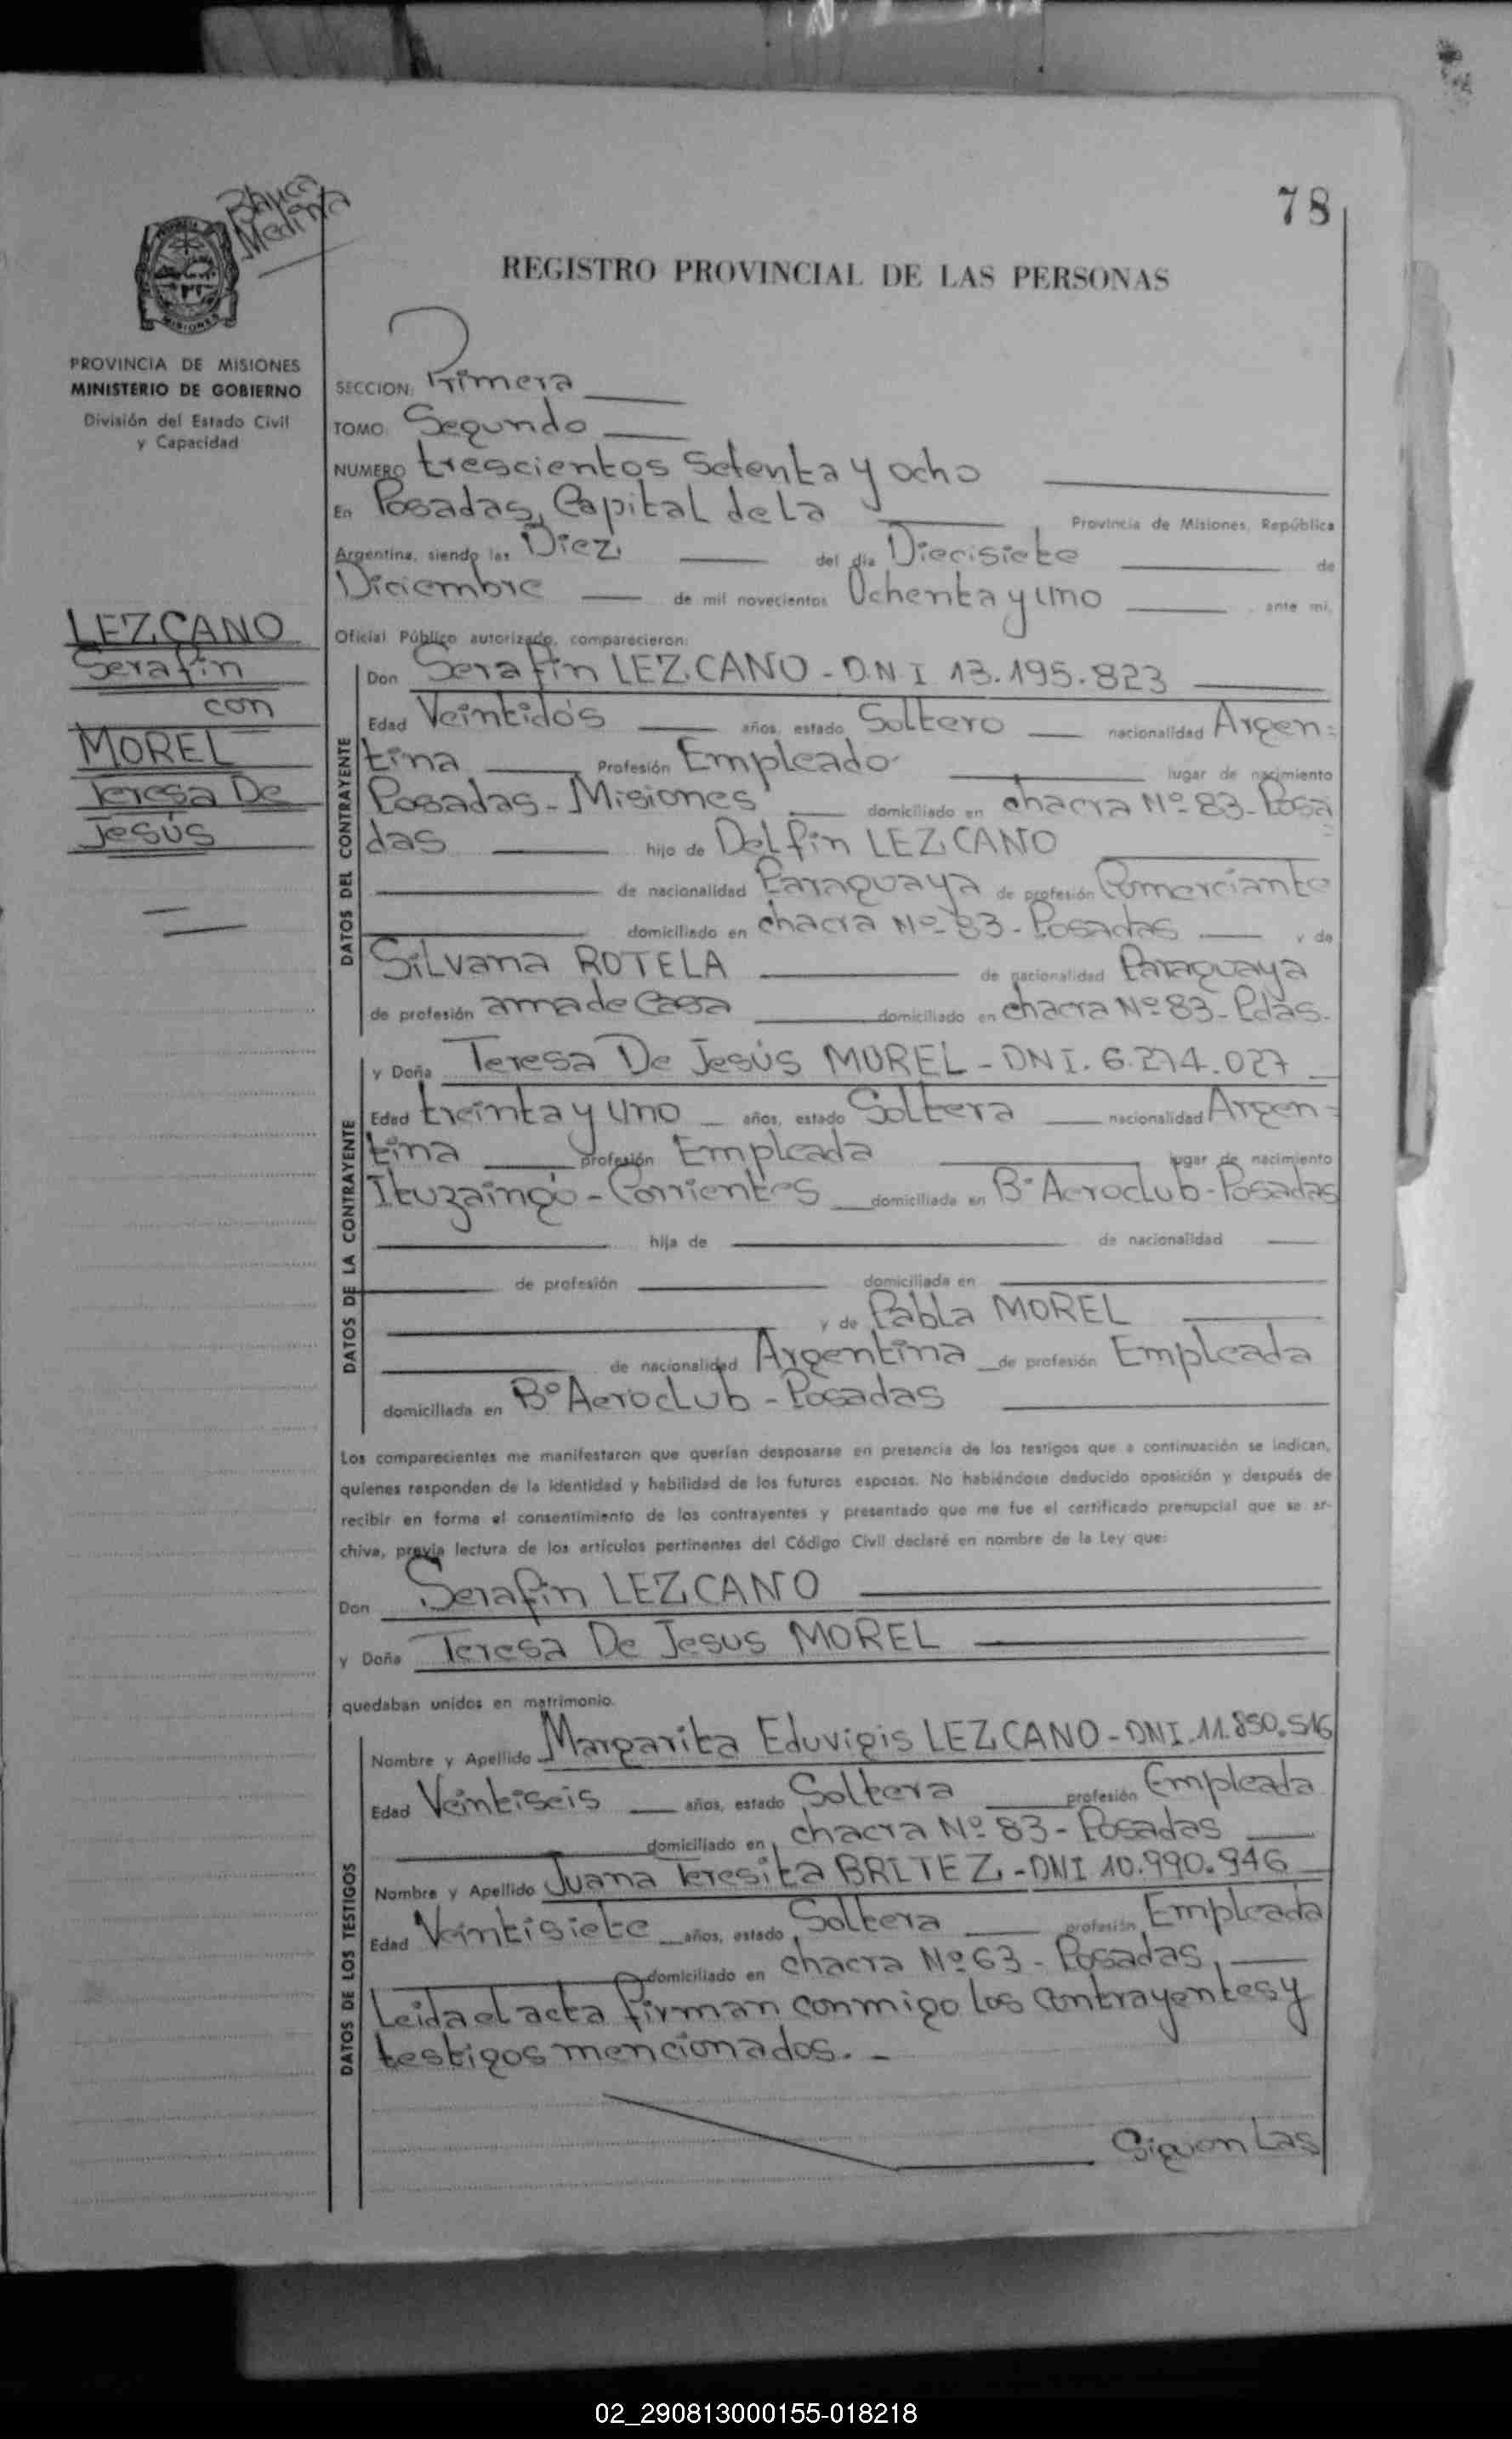 78
Blanca
Medina
REGISTRO PROVINCIAL DE LAS PERSONAS
MISIONES
PROVINCIA DE MISIONES
MINISTERIO DE GOBIERNO
División del Estado Civil
y Capacidad
LEZCANO
Serafín
con
MOREL
Teresa De
Jesús
SECCION: Primera
TOMO: Segundo
NUMERO trescientos Setenta y ocho
En Posadas, Capital de La , Provincia de Misiones, República
Argentina, siendo las Diez del día Diecisiete de
Diciembre de mil novecientos Ochenta y uno , ante mí,
Oficial Público autorizado, comparecieron:
DATOS DEL CONTRAYENTE
Don Serafín LEZCANO - D.N.I 13.195.823
Edad Veintidós años, estado Soltero nacionalidad Argen=
tina Profesión Empleado lugar de nacimiento
Posadas - Misiones domiciliado en chacra Nº 83 - Posa
das hijo de Delfín LEZCANO
de nacionalidad Paraguaya de profesión Comerciante
domiciliado en chacra Nº 83 - Posadas y de
Silvana ROTELA de nacionalidad Paraguaya
de profesión ama de Casa domiciliado en chacra Nº 83 - Pdas.
DATOS DE LA CONTRAYENTE
y Doña Teresa De Jesús MOREL - DNI. 6.274.027
Edad treinta y uno años, estado Soltera nacionalidad Argen=
tina profesión Empleada lugar de nacimiento
Ituzaingó - Corrientes domiciliada en Bº Aeroclub - Posadas
hija de de nacionalidad
de profesión domiciliada en
y de Pabla MOREL
de nacionalidad Argentina de profesión Empleada
domiciliada en Bº Aeroclub - Posadas
Los comparecientes me manifestaron que querían desposarse en presencia de los testigos que a continuación se indican,
quienes responden de la identidad y habilidad de los futuros esposos. No habiéndose deducido oposición y después de
recibir en forma el consentimiento de los contrayentes y presentado que me fue el certificado prenupcial que se ar-
chiva, previa lectura de los artículos pertinentes del Código Civil declaré en nombre de la Ley que:
Don Serafín LEZCANO
y Doña Teresa De Jesus MOREL
quedaban unidos en matrimonio.
DATOS DE LOS TESTIGOS
Nombre y Apellido Margarita Eduvigis LEZCANO - DNI. 11.850.516
Edad Veintiseis años, estado Soltera profesión Empleada
domiciliado en chacra Nº 83 - Posadas
Nombre y Apellido Juana Teresita BRITEZ - DNI 10.990.946
Edad Veintisiete años, estado Soltera profesión Empleada
domiciliado en chacra Nº 63 - Posadas,
Leida el acta firman conmigo los contrayentes y
testigos mencionados. -
Siguen Las
02_290813000155-018218